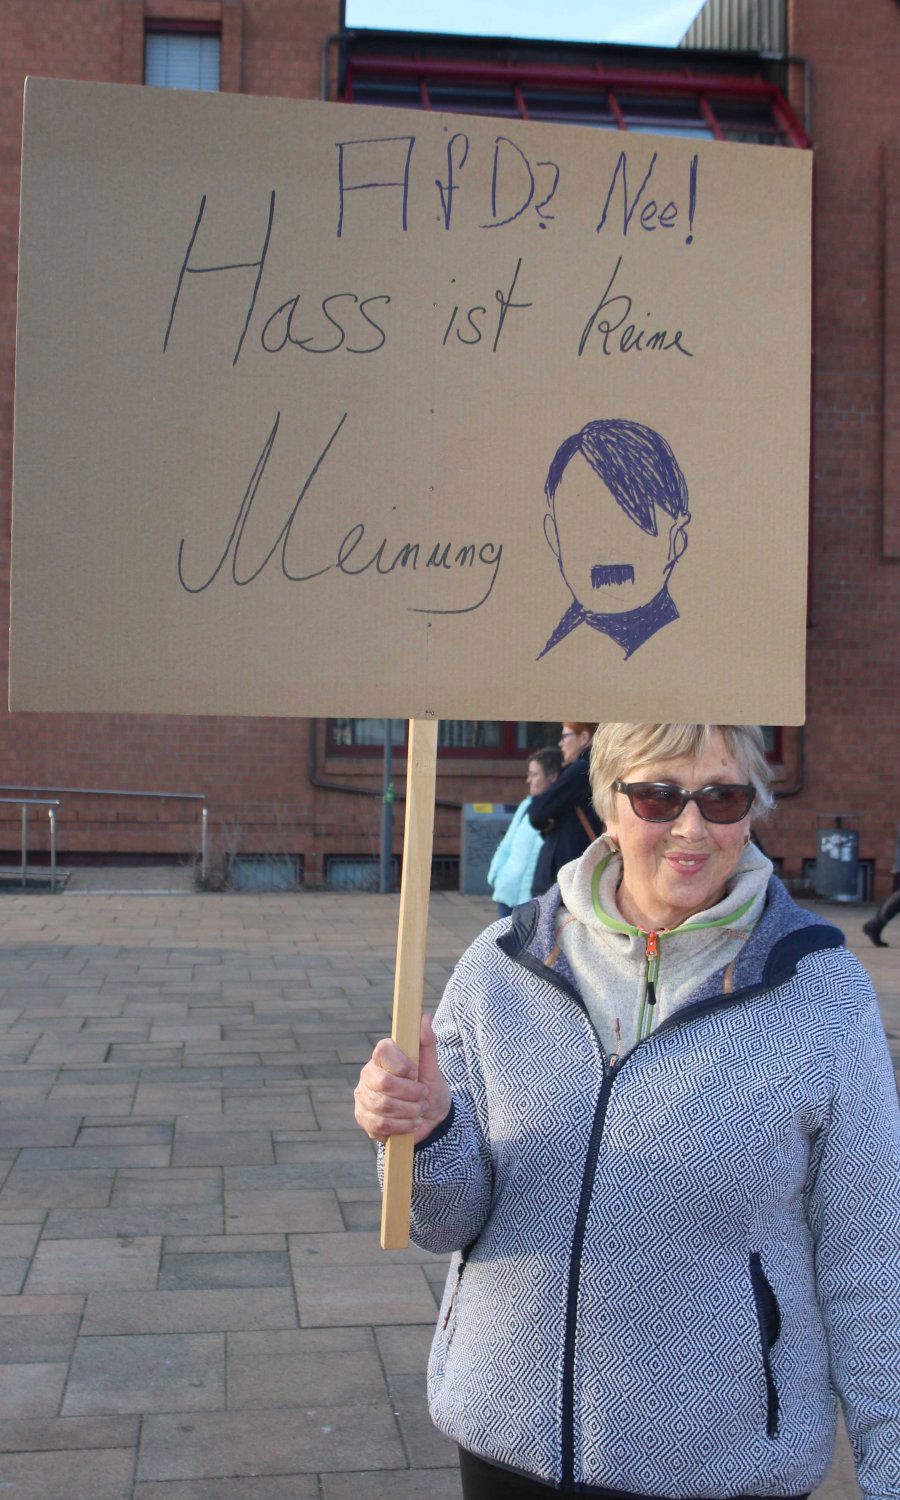 AfD? Nee!
Hass ist keine
Meinung